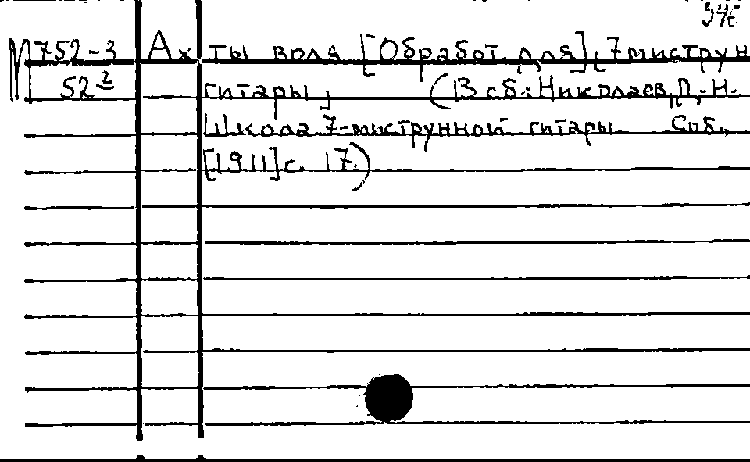 М 752-3 Ах ты воля [Обработ. для] 7миструн
52² гитары, (В сб.: Николаев, П.Н.
Школа 7-миструнной гитары. Спб.,
[1911] с. 17.)